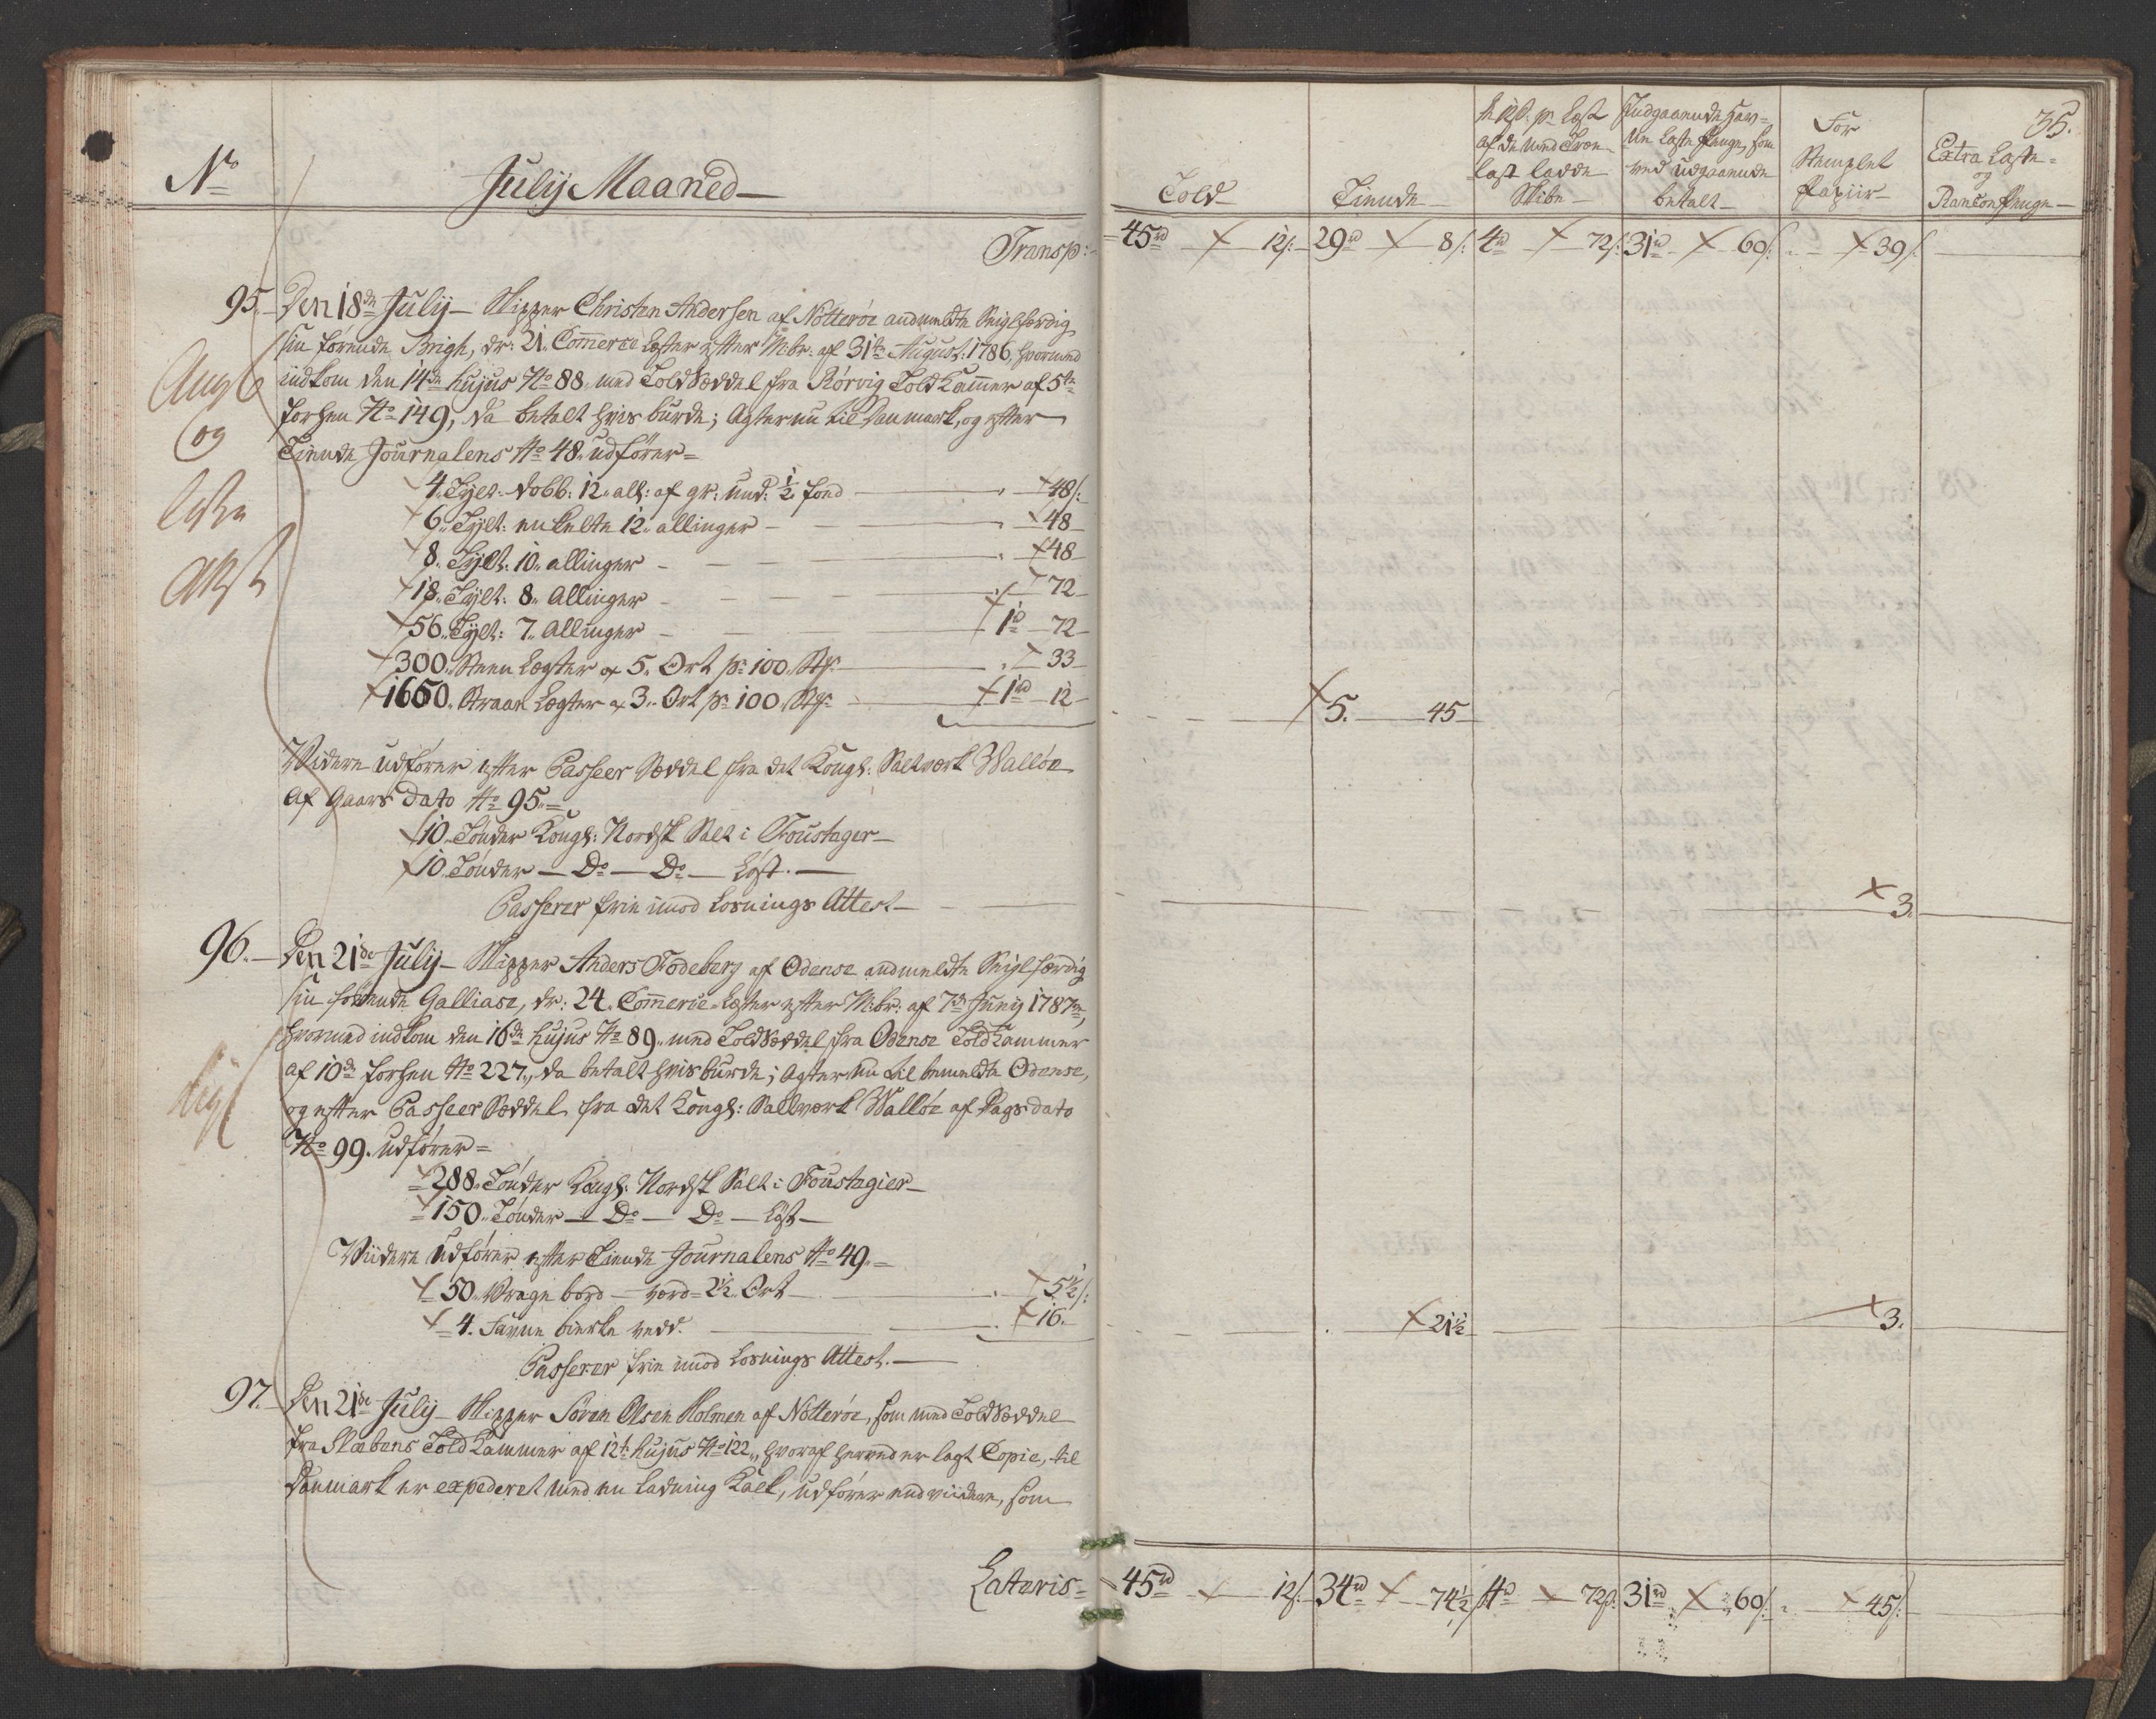 No
Julij Maaned
35.
Told
Tiende
à 12 s. pr Læst af de med Træ-
last ladde
Skibe
Indgaaende Hav-
ne Læste Penge, som
ved udgaaende
betalt
For
Stemplet
Papiir
Extra Læste-
og
Rancon Penge
Transp: 45rd 12s. 29rd 8s. 4rd 72s. 31rd 60s. 39s.
95. Den 18de Julij Skipper Christen Andersen af Nötteröe andmeldte Seiglfærdig
sin förende Brigh, dr: 21. Commerce Læster efter M:br: af 31te August: 1786, hvormed
indkom den 14de hujus No 88 med ToldSeddel fra Rörvig ToldKammer af 5te
forhen No 149, da betalt hvis burde; Agter nu til Danmark, og efter
Tiende Journalens No 48 udförer=
4. Tylt. dobb: 12 all: af gr: und: 1/2 fond 48s.
6. Tylt: enkelte 12 allinger 48
8. Tylt: 10 allinger 48
18. Tylt: 8 Allinger 72
56. Tylt: 7 Allinger 1rd 72
300. Steen Lægter a 5 Ort pr 100 Stk. 33
1650. Straae Lægter a 3 Ort pr 100 Stk. 1rd 12
5. 45
Widere udförer efter Passeer Seddel fra det Kongl: Saltværk Wallöe
af Gaars Dato No 95.
10. Tönder Kongl: Nordsk Salt i Foustager
10. Tönder Do Do Löst.
Passerer frie imod Losnings Attest 3.
96. Den 21de Julij Skipper Anders Fodeberg af Odense andmeldte Seiglfærdig
sin förende Galliase, dr: 24. Commerce-Læster efter M:br: af 7de Junij 1787,
hvormed indkom den 16de hujus No 89 med ToldSeddel fra Odense ToldKammer
af 10de forhen No 227, da betalt hvis burde; Agter nu til bemeldte Odense,
og efter Passeer Seddel fra det Kongl: Saltværk Wallöe af Dags dato
No 99. udförer=
288. Tönder Kongl: Nordsk Salt i Foustagier
150. Tönder Do Do Löst
Wiidere udförer efter Tiende Journalens No 49.
50. Vrage bord værd 2 1/2 Ort 5 1/2 s.
4. Favne birke vedd. 16.
21 1/2 3.
Passerer frie imod Losnings Attest.
97. Den 21de Julij Skipper Sören Olsen Holmen af Nötteröe, som med ToldSeddel
fra Slæbens ToldKammer af 12te hujus No 122, hvoraf herved er lagt Copie, til
Danmark er expederet med en Ladning Kalk, udförer end viidere, som
Lateris 45rd 12s. 34rd 74 1/2 4rd 72s. 31rd 60s. 45s.